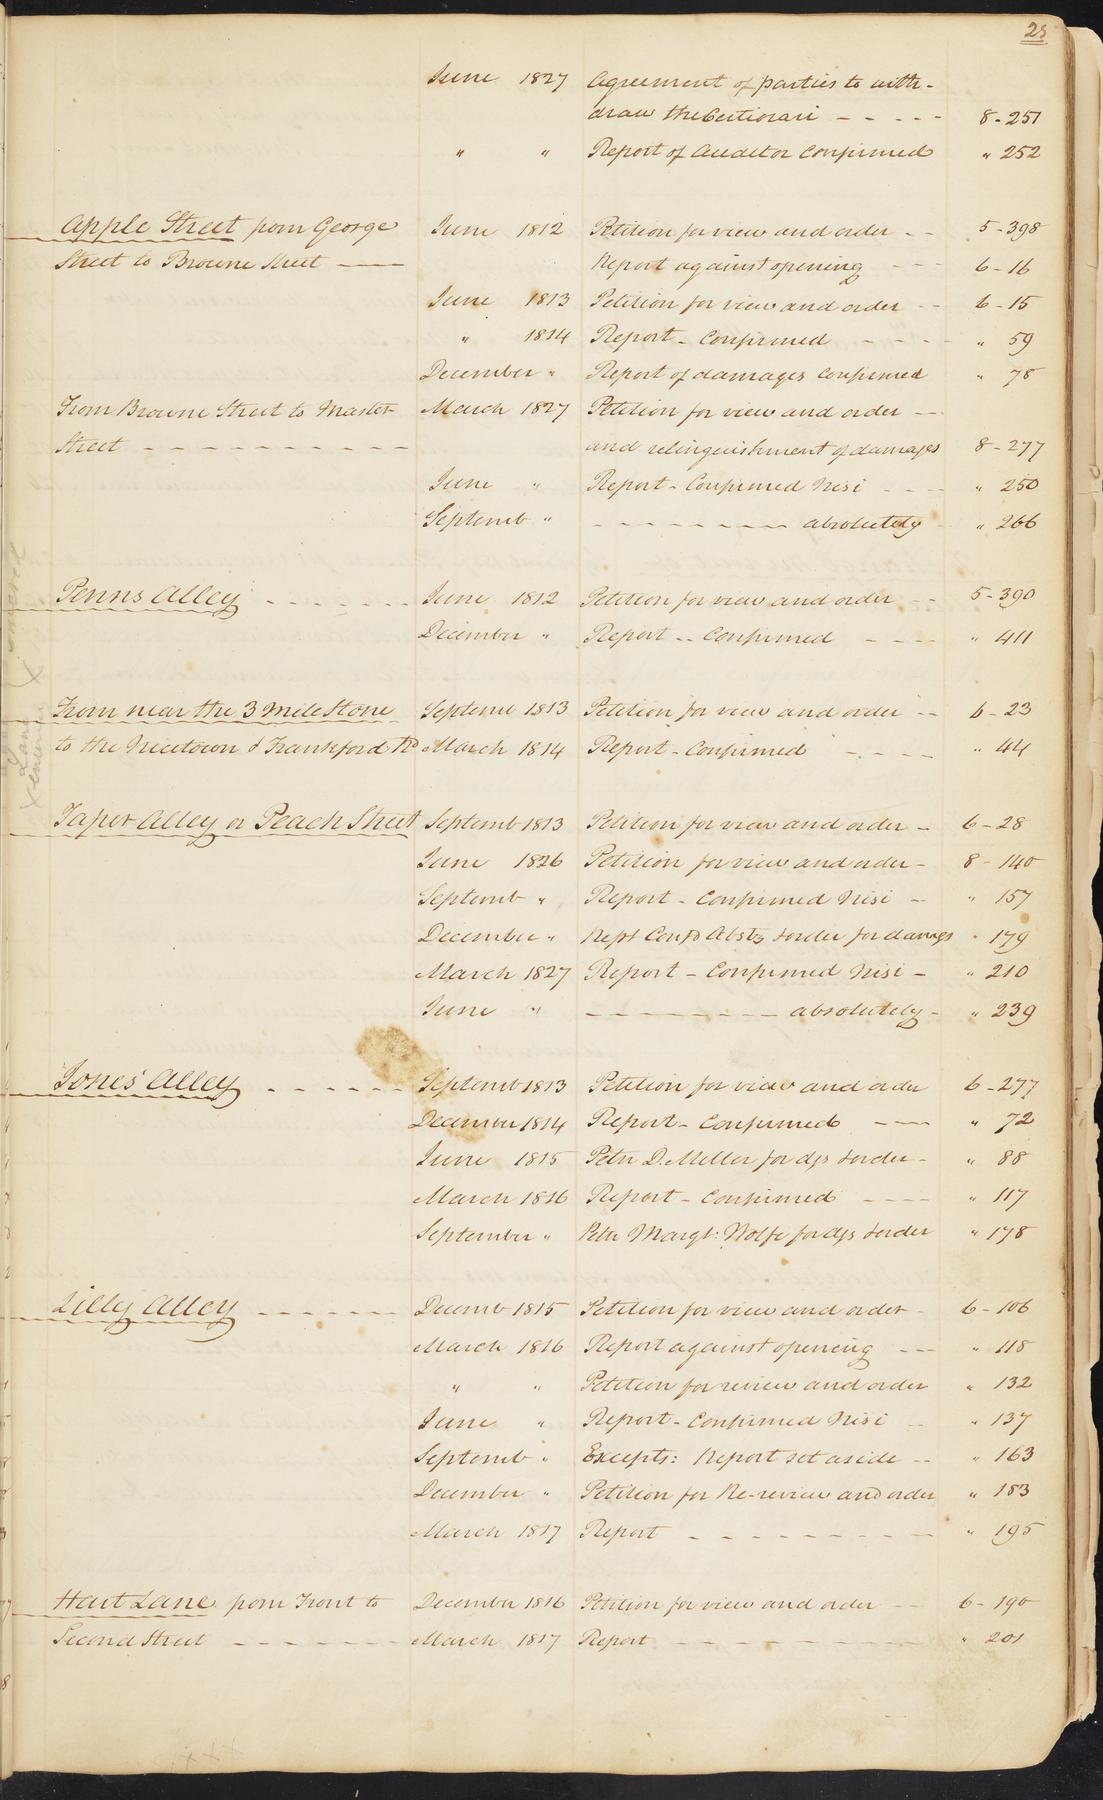 25
June 1827 Agreement of parties to with-
draw the Certiorari - - - - 8-251
" " Report of Auditor Confirmed " 252
Apple Street from George June 1812 Petition for view and order - - 5-398
Street to Browne Street —— Report against opening - - - 6-16
June 1813 Petition for view and order - - 6-15
" 1814 Report - Confirmed - - - - " 59
December " Report of damages Confirmed " 78
From Browne Street to Master March 1827 Petition for view and order —
Street - - - - - - - - - - and relinquishment of damages 8-277
June " Report - Confirmed Nisi - - - " 250
Septemb " - - - - - - - - absolutely - " 266
Penns Alley - - - - - - June 1812 Petition for view and order - - 5-390
December " Report - - Confirmed - - - - " 411
From near the 3 Mile Stone Septemr 1813 Petition for view and order - - 6-23
to the Nicetown & Frankford Rd March 1814 Report - Confirmed - - - - " 44
Taper Alley or Peach Street Septemb 1813 Petition for view and order - 6-28
June 1826 Petition for view and order - 8-140
Septemb " Report - Confirmed Nisi - " 157
December " Rept Confd Absty & order for damags " 179
March 1827 Report - Confirmed Nisi - " 210
June " - - - - - - - - absolutely - " 239
Jones' Alley - - - - - Septemb 1813 Petition for view and order 6-277
December 1814 Report - Confirmed - - - " 72
June 1815 Petn D. Miller for dgs & order - " 88
March 1816 Report - Confirmed - - - - " 117
September " Petn Margt: Wolfe for dgs & order " 178
Lilly Alley - - - - - - Decemb 1815 Petition for view and order - 6-106
March 1816 Report against opening - - - " 118
" " Petition for review and order " 132
June " Report - Confirmed Nisi - - " 137
Septemb " Excepts: Report set aside - - " 163
December " Petition for Re-review and order " 183
March 1817 Report - - - - - - - - " 195
Hart Lane from Front to December 1816 Petition for view and order - - 6-190
Second Street - - - - - - March 1817 Report - - - - - - - - " 201